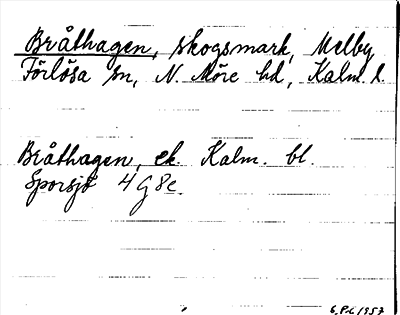 Bråthagen, skogsmark, Melby,
Förlösa sn, N. Möre hd, Kalm. l.
Bråthagen, ek. Kalm. bl.
Sporsjö 4G8c.
G.P.C 1957